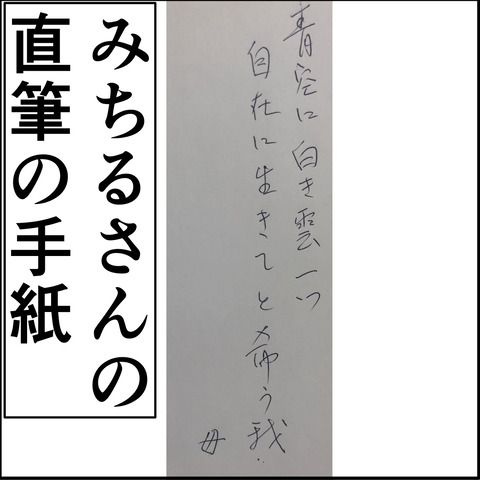 青空に白き雲一つ
自在に生きてと希う我
母
みちるさんの
直筆の手紙